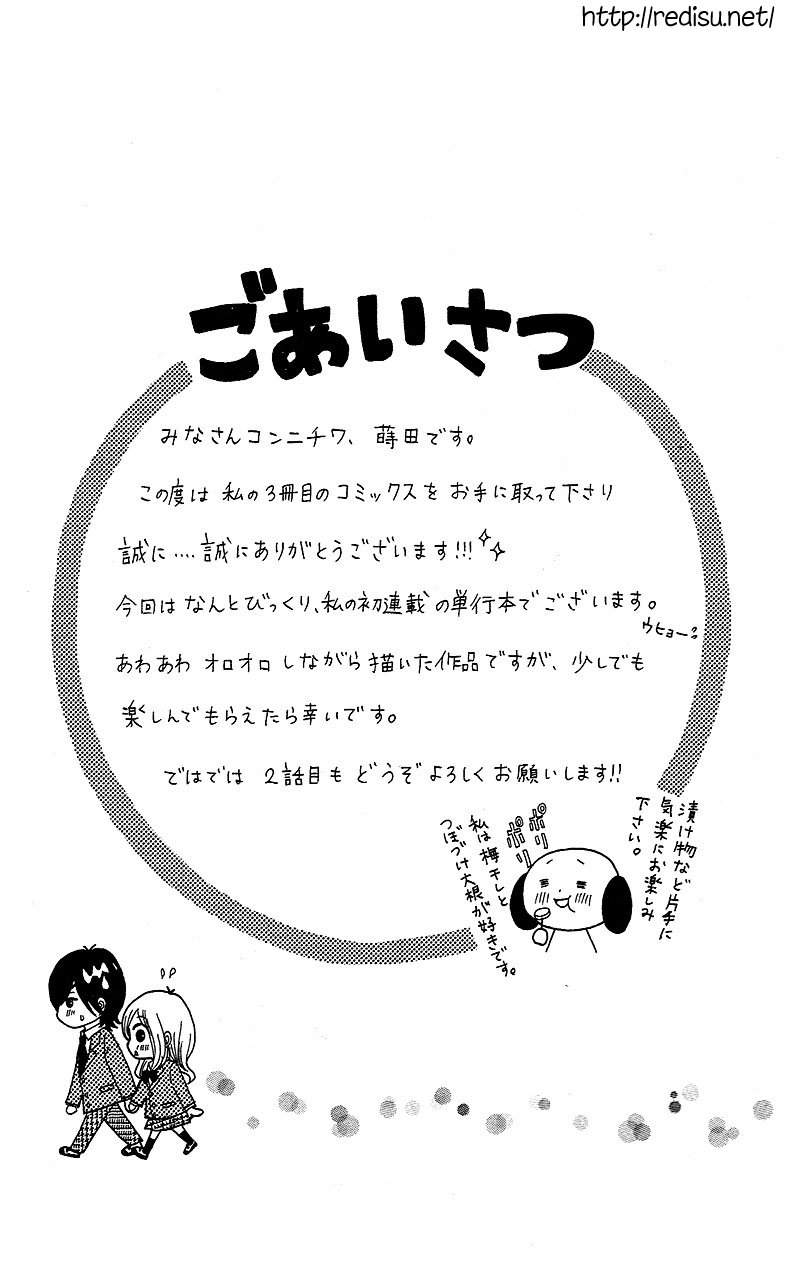 http://redisu.net/
ごあいさつ
みなさんコンニチワ、蒔田です。
この度は 私の3冊目のコミックスを お手に取って下さり
誠に....誠にありがとうございます!!!
今回は なんとびっくり、私の初連載の単行本でございます。
ウヒョー
あわあわ オロオロ しながら描いた作品ですが、少しでも
楽しんでもらえたら幸いです。
ではでは 2話目も どうぞ よろしく お願いします!!
漬け物など片手に
気楽にお楽しみ
下さい。
ポリ
ポリ
私は梅干しと
つぼづけ大根が好きです。